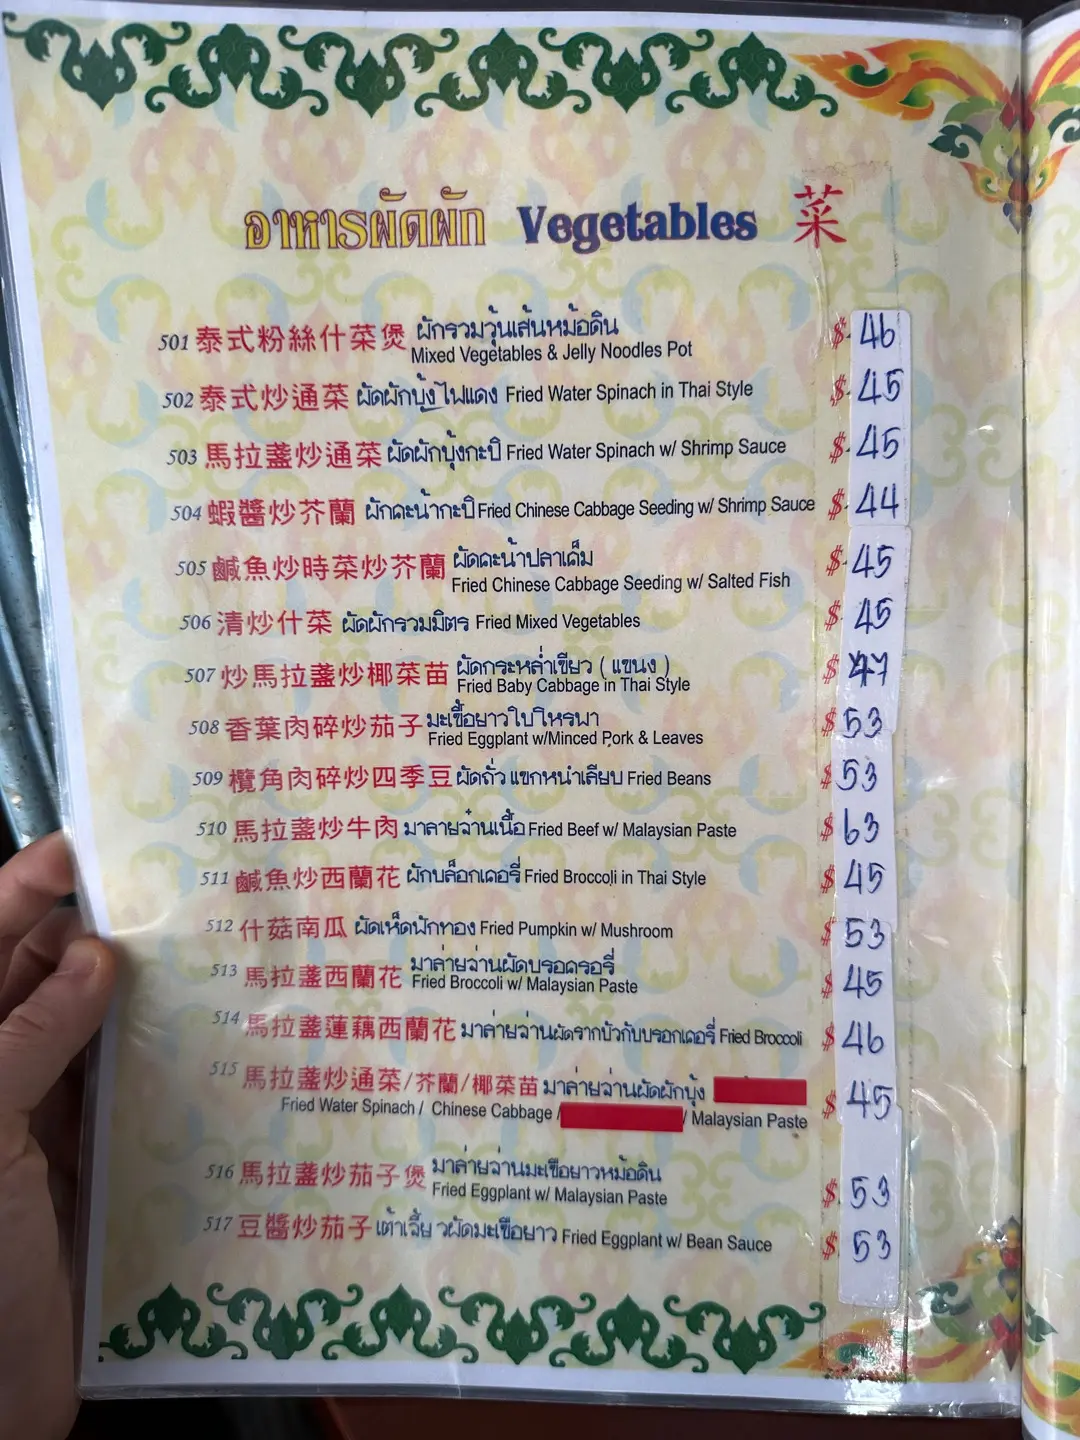 อาหารผัดผัก Vegetables 菜
501 泰式粉絲什菜煲 ผักรวมวุ้นเส้นหม้อดิน $ 46
Mixed Vegetables & Jelly Noodles Pot
502 泰式炒通菜 ผัดผักบุ้งไฟแดง Fried Water Spinach in Thai Style $ 45
503 馬拉盞炒通菜 ผัดผักบุ้งกะปิ Fried Water Spinach w/ Shrimp Sauce $ 45
504 蝦醬炒芥蘭 ผักคะน้ากะปิ Fried Chinese Cabbage Seeding w/ Shrimp Sauce $ 44
505 鹹魚炒時菜炒芥蘭 ผัดคะน้าปลาเค็ม $ 45
Fried Chinese Cabbage Seeding w/ Salted Fish
506 清炒什菜 ผัดผักรวมมิตร Fried Mixed Vegetables $ 45
507 炒馬拉盞炒椰菜苗 ผัดกระหล่ำเขียว ( แขนง ) $ 47
Fried Baby Cabbage in Thai Style
508 香葉肉碎炒茄子 มะเขือยาวใบโหรพา $ 53
Fried Eggplant w/Minced Pork & Leaves
509 欖角肉碎炒四季豆 ผัดถั่วแขกหนำเลียบ Fried Beans $ 53
510 馬拉盞炒牛肉 มาลายฉ๋านเนื้อ Fried Beef w/ Malaysian Paste $ 63
511 鹹魚炒西蘭花 ผักบล็อกเคอรี่ Fried Broccoli in Thai Style $ 45
512 什菇南瓜 ผัดเห็ดฟักทอง Fried Pumpkin w/ Mushroom $ 53
513 馬拉盞西蘭花 มาล่ายฉ่านผัดบรอคคอรี่ $ 45
Fried Broccoli w/ Malaysian Paste
514 馬拉盞蓮藕西蘭花 มาล่ายฉ่านผัดรากบัวกับบรอกเคอรี่ Fried Broccoli $ 46
515 馬拉盞炒通菜/芥蘭/椰菜苗 มาล่ายฉ่านผัดผักบุ้ง $ 45
Fried Water Spinach / Chinese Cabbage / / Malaysian Paste
516 馬拉盞炒茄子煲 มาล่ายฉ่านมะเขือยาวหม้อดิน $ 53
Fried Eggplant w/ Malaysian Paste
517 豆醬炒茄子 เต้าเจี้ยวผัดมะเขือยาว Fried Eggplant w/ Bean Sauce $ 53